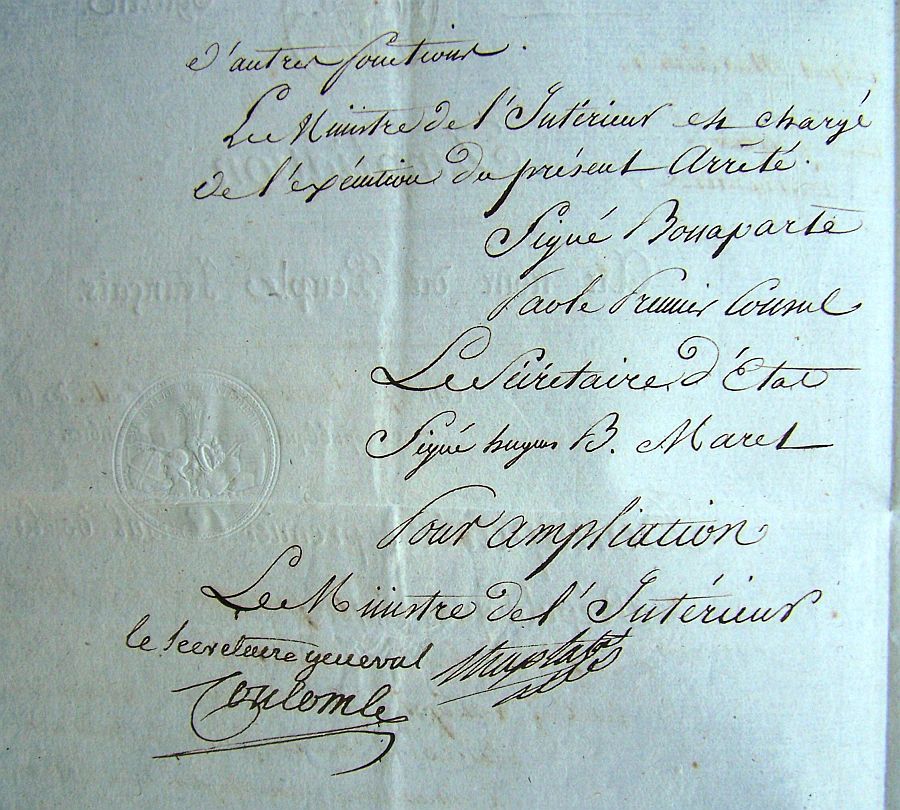 d'autres fonctions.
Le Ministre de l'Intérieur est chargé
de l'exécution du présent Arrêté.
Signé Bonaparte
Par le Premier Consul
Le Secrétaire d'État
Signé hugues B. Maret
Pour ampliation
Le Ministre de l'Intérieur
le Secretaire general
Coulomb